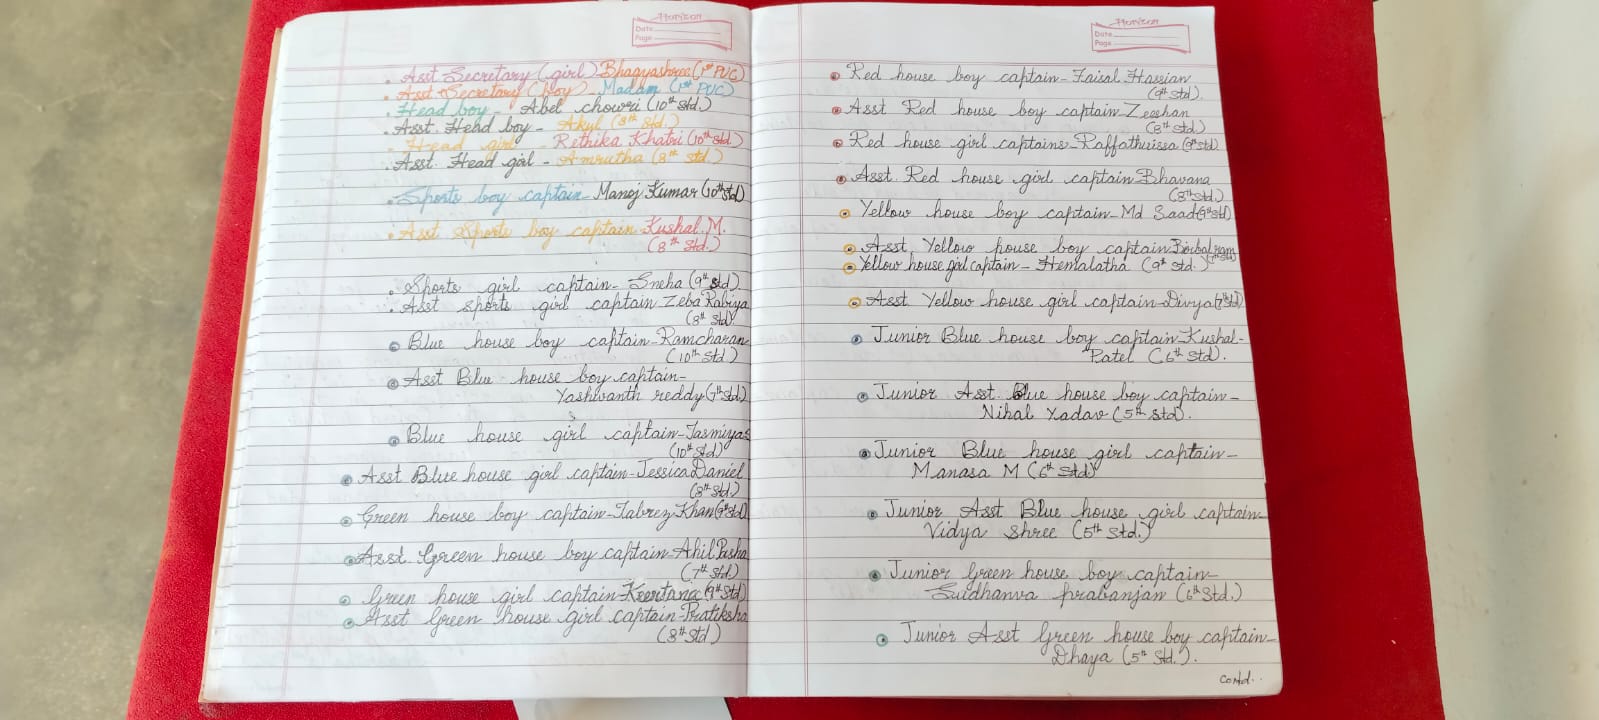 Horizon
Date
Page
. Asst Secretary (girl) Bhagyashree (1st PUC)
. Asst Secretary (boy) - Madam (1st PUC)
. Head boy - Abel chowri (10th std.)
. Asst. Head boy - Akyl (8th Std.)
. Head girl - Rethika Khatri (10th std)
. Asst. Head girl - Amrutha (8th std.)
. Sports boy captain - Manoj Kumar (10th std)
. Asst Sports boy captain - Kushal. M.
(8th Std.)
. Sports girl captain - Sneha (9th std)
. Asst sports girl captain Zeba Rabiya
(8th std).
Blue house boy captain - Ramcharan
(10th std)
Asst Blue house boy captain -
Yashwanth reddy (7th std.)
Blue house girl captain - Tasmiyas
(10th std)
Asst Blue house girl captain - Jessica Daniel
(8th std.)
Green house boy captain - Tabrez Khan (9th std)
Asst. Green house boy captain - Ahil Pasha
(7th std)
Green house girl captain - Keertana (9th std)
Asst Green house girl captain - Pratiksha
(8th std)
Horizon
Date
Page
Red house boy captain - Faisal Hassian
(9th std).
Asst Red house boy captain Zeeshan
(8th std)
Red house girl captains - Raffathuissa (9th std)
Asst. Red house girl captain Bhavana
(8th std)
Yellow house boy captain - Md Saad (9th std)
Asst. Yellow house boy captain Birbal ram
Yellow house girl captain - Hemalatha (9th std.)
Asst Yellow house girl captain - Divya (7th std)
Junior Blue house boy captain - Kushal -
Patel (6th std).
Junior Asst. Blue house boy captain -
Nihal Yadav (5th std).
Junior Blue house girl captain -
Manasa M (6th std)
Junior Asst Blue house girl captain -
Vidya Shree (5th std.)
Junior Green house boy captain -
Sudhanva prabanjan (6th std.)
Junior Asst Green house boy captain -
Dhaya (5th std.).
Contd...